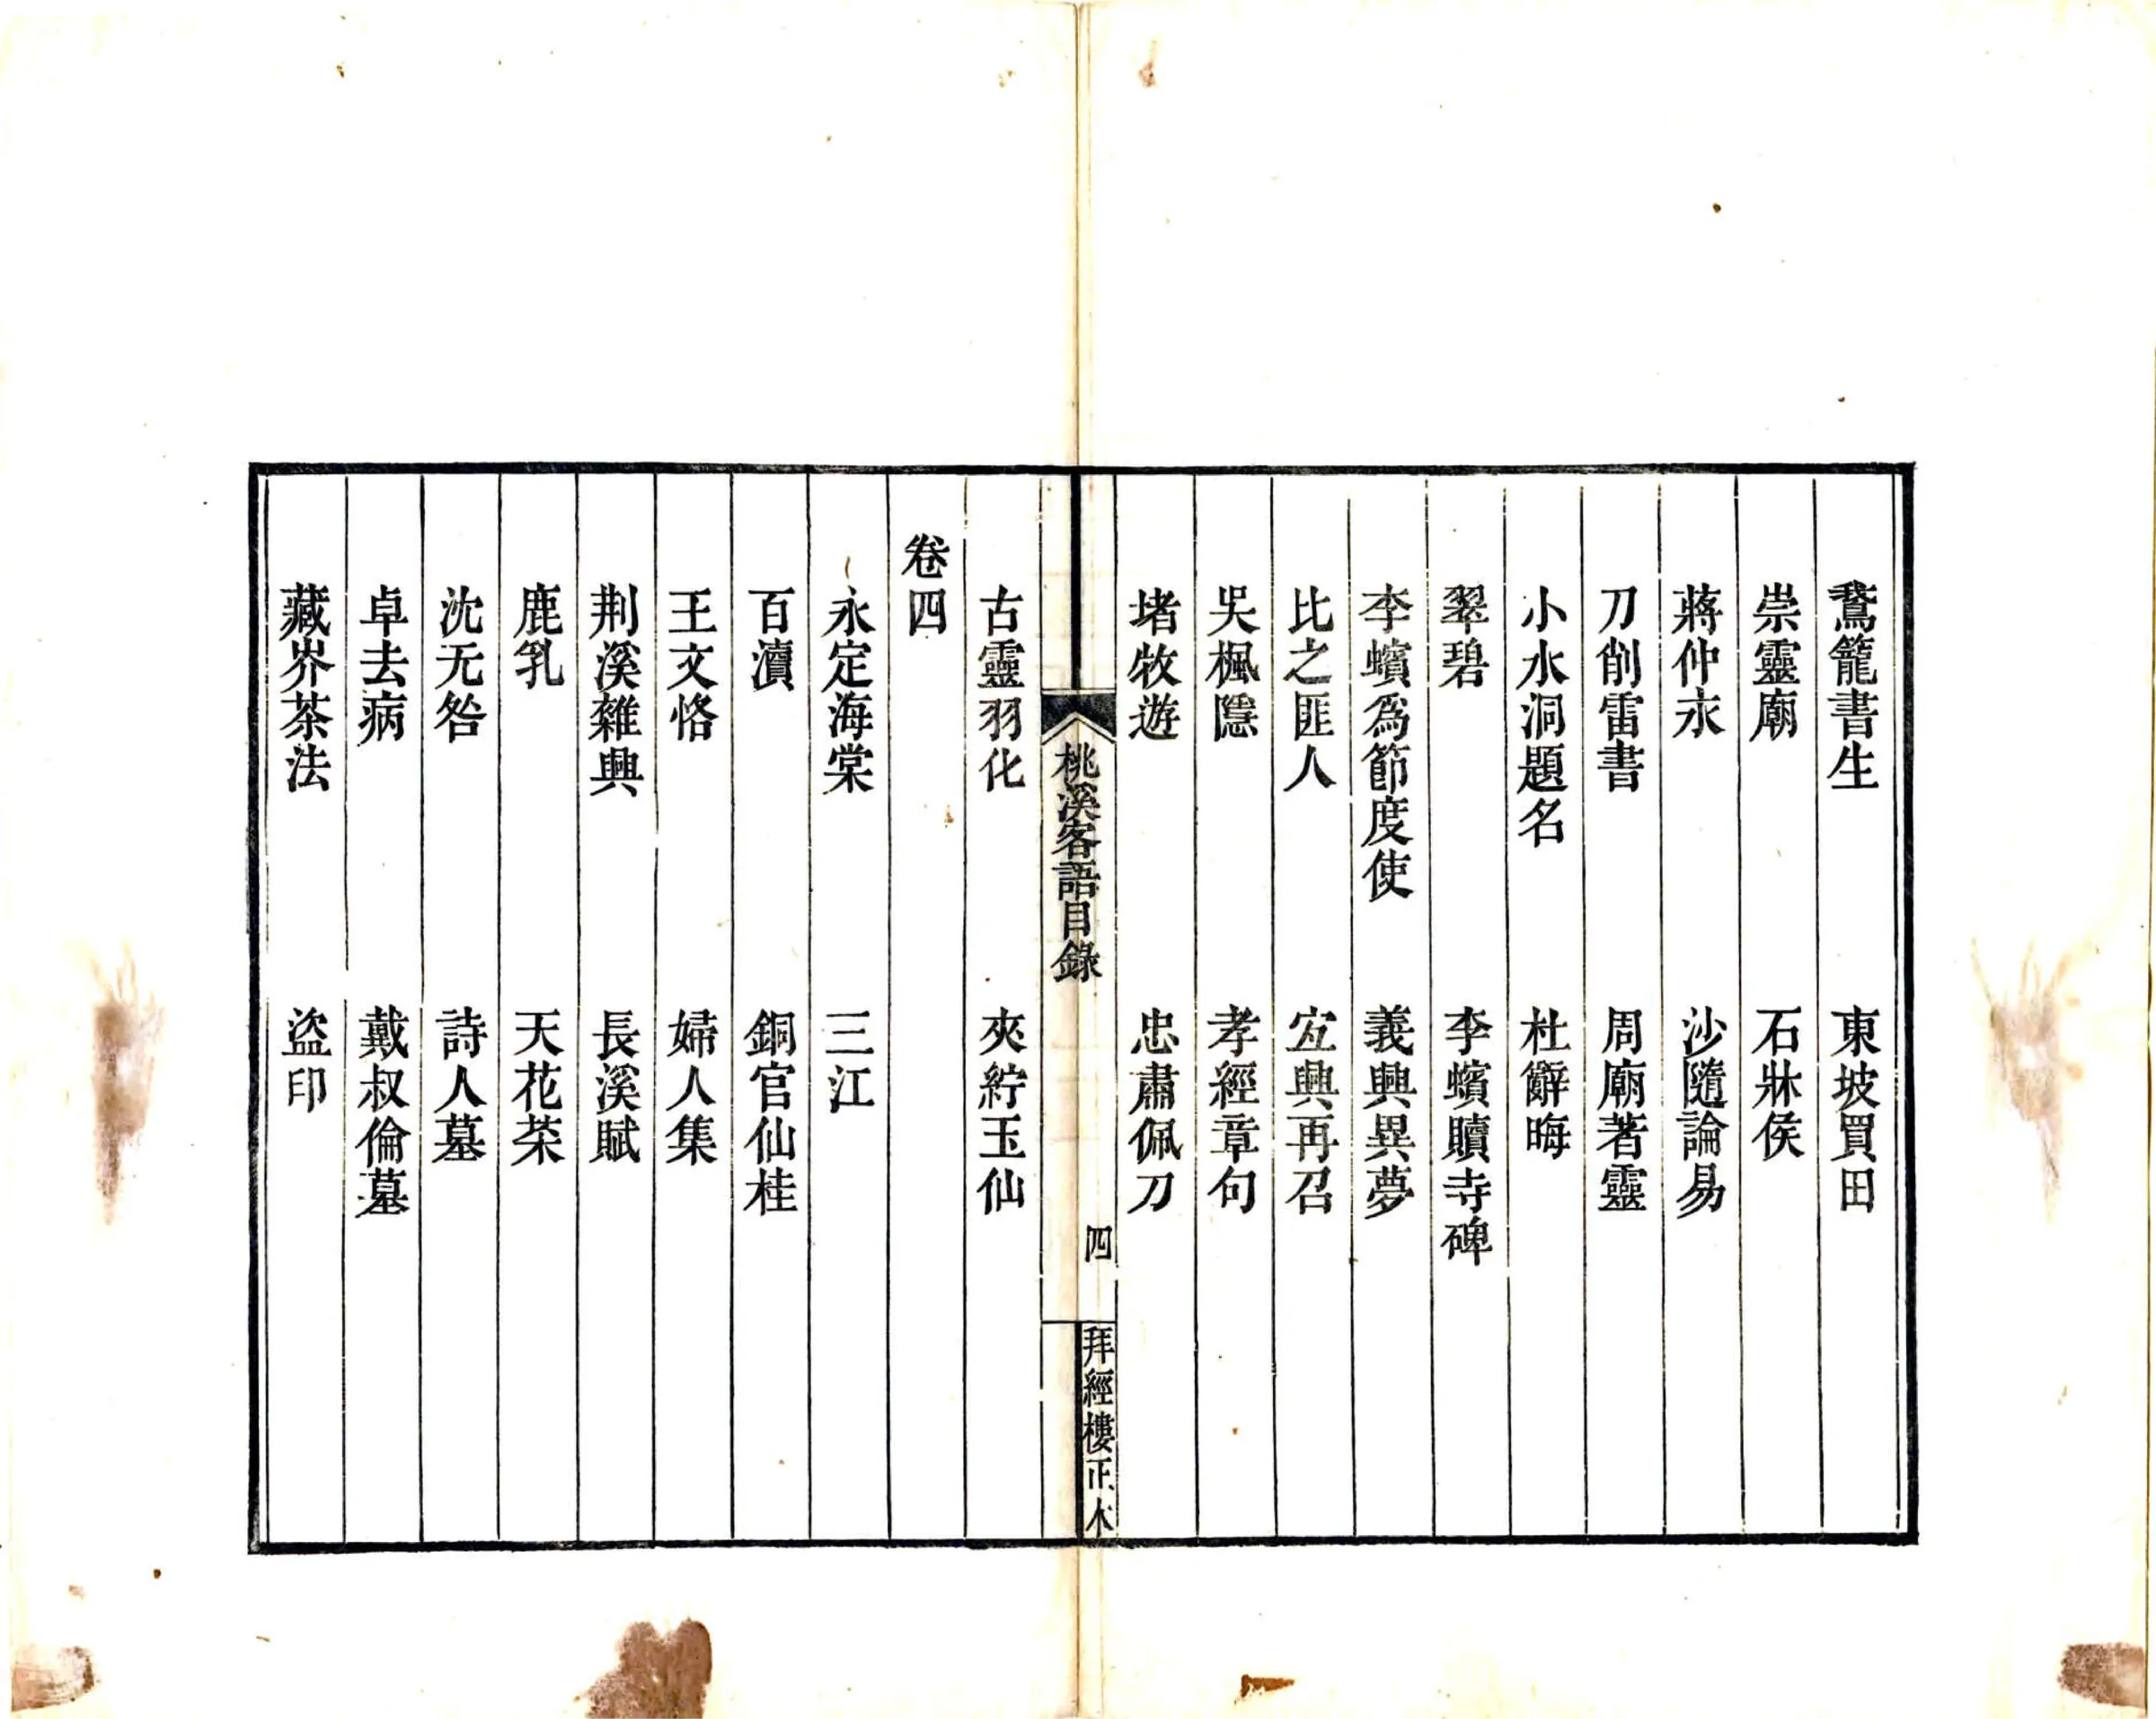 鵞籠書生　東坡買田
崇靈廟　石牀侯
蔣仲永　沙隨論易
刀削雷書　周廟著靈
小水洞題名　杜辭晦
翠碧　李蠙贖寺碑
李蠙爲節度使　義興異夢
比之匪人　宐興再召
吳楓隱　孝經章句
堵牧遊　忠肅佩刀
桃溪客語目錄　四　拜經樓正本
古靈羽化　夾紵玉仙
卷四
永定海棠　三江
百瀆　銅官仙桂
王文恪　婦人集
荆溪雜興　長溪賦
鹿乳　天花菜
沈无咎　詩人墓
卓去病　戴叔倫墓
藏岕茶法　盜印